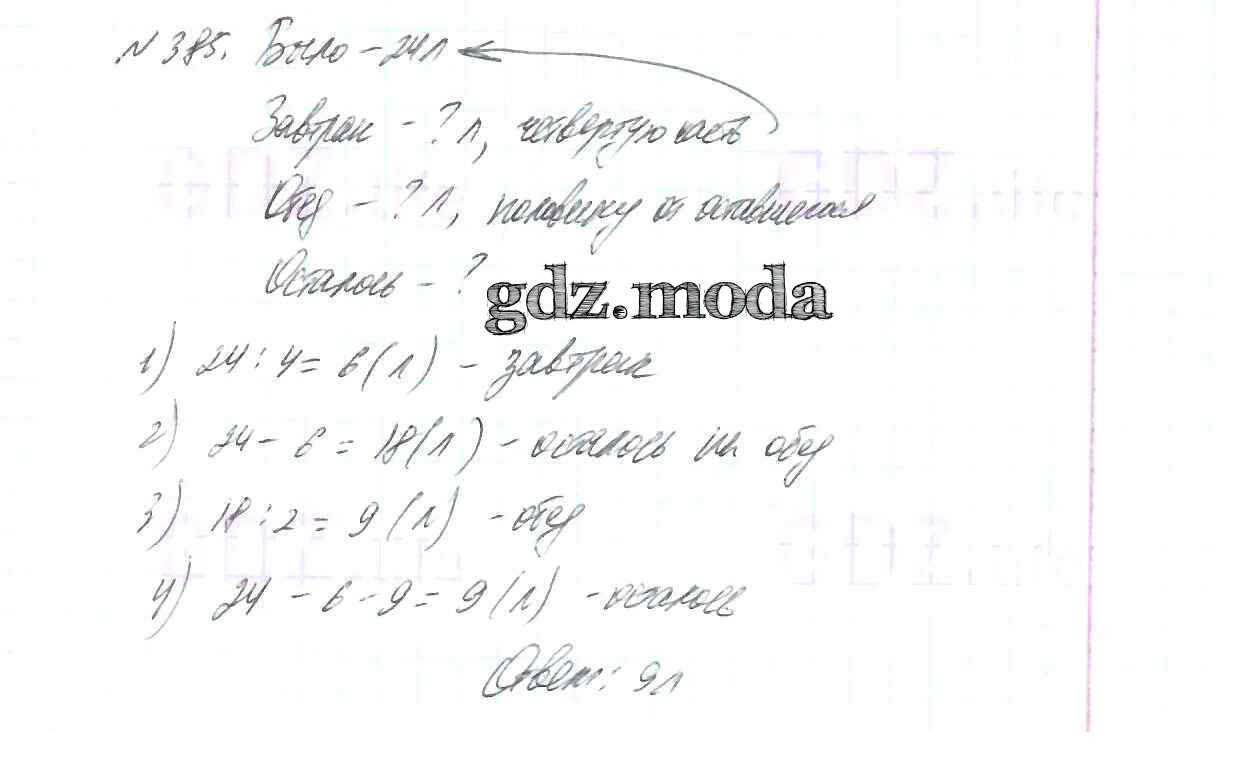 № 385. Было – 24 л
Завтрак – ? л, четвертую часть
Обед – ? л, половину от оставшегося
Осталось – ?
gdz.moda
1) 24 : 4 = 6 (л) – завтрак
2) 24 – 6 = 18 (л) – осталось на обед
3) 18 : 2 = 9 (л) – обед
4) 24 – 6 – 9 = 9 (л) – осталось
Ответ: 9 л